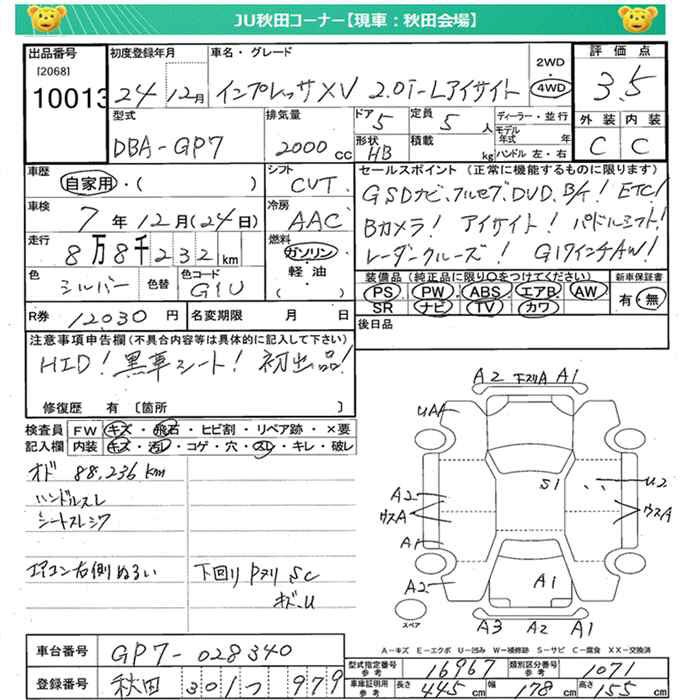 JU秋田コーナー【現車：秋田会場】
出品番号
[2068]
10013
初度登録年月
24 12月
車名・グレード
インプレッサXV 2.0i-Lアイサイト
2WD
4WD
評価点
3.5
型式
DBA-GP7
排気量
2000 cc
ドア
5
形状
HB
定員
5 人
積載
kg
ディーラー・並行
モデル年式 年
ハンドル 左・右
外装 内装
C C
車歴
自家用・( )
シフト
CVT
車検
7年12月(24日)
冷房
AAC
走行
8万8千232km
燃料
ガソリン
軽・油
( )
色
シルバー
色替
色コード
G1U
セールスポイント (正常に機能するものに限ります)
GSDナビ、フルセグ、DVD、B/T! ETC!
Bカメラ! アイサイト! パドルシフト!
レーダークルーズ! G17インチAW!
装備品 (純正品に限り〇をつけてください)
PS PW ABS エアB AW
SR ナビ TV カワ
新車保証書
有・無
R券 12030 円
名変期限 月 日
後日品
注意事項申告欄(不具合内容等は具体的に記入して下さい)
HID! 黒革シート! 初出品!
修復歴 有〔箇所 〕
検査員記入欄
FW キズ・飛石・ヒビ割・リペア跡・×要
内装 キズ・汚レ・コゲ・穴・スレ・キレ・破レ
オド 88,236km
ハンドルスレ
シートスレシワ
エアコン右側ぬるい
下回り Pヌリ SC
ホド、U
A2 下スリA A1
UA1
S1
U2
A2
ウスA
ウスA
A1
A2
A1
A3 A2 A1
スペア
A－キズ E－エクボ U－凹み W－補修跡 S－サビ C－腐食 XX－交換済
車台番号
GP7-028340
登録番号
秋田 301 つ 979
型式指定番号 参考
16967
類別区分番号 参考
1071
車庫証明用 参考
長さ 445 cm 幅 178 cm 高さ 155 cm